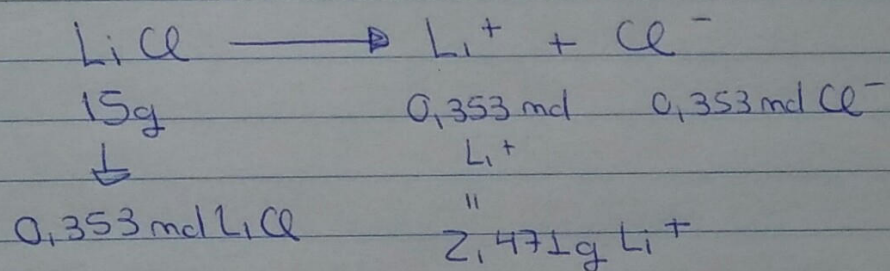 LiCl → Li⁺ + Cl⁻
15g 0,353 mol 0,353 mol Cl⁻
↓ Li⁺
=
0,353 mol LiCl 2,471g Li⁺